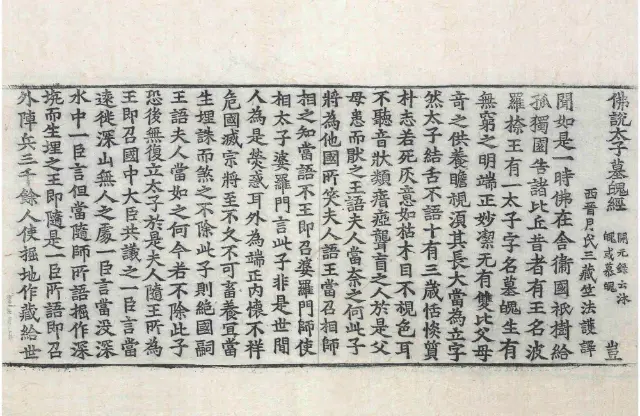 佛說太子墓魄經 開元錄云沐魄或慕魄 豈
西晉月氏三藏竺法護譯
聞如是一時佛在舍衛國祇樹給
孤獨園告諸比丘昔者有王名波
羅㮈王有一太子字名墓魄生有
無窮之明端正妙潔无有雙比父母
奇之供養瞻視須其長大當為立字
然太子結舌不語十有三歲恬惔質
朴志若死灰意如枯木目不視色耳
不聽音狀類瘖瘂聾盲之人於是父
母患而猒之王語夫人當奈之何此子
將為他國所笑夫人語王當召相師
相之知當語不王即召婆羅門師使
相太子婆羅門言此子非是世間
人為是熒惑耳外為端正內懷不祥
危國滅宗將至不久不可畜養宜當
生埋誅而煞之不除此子則絕國嗣
王語夫人當如之何今若不除此子
恐後無復立太子於是夫人隨王所為
王即召國中大臣共議之一臣言當
遠徙深山無人之處一臣言當沒深
水中一臣言但當隨師所語掘作深
坑而生埋之王即隨是一臣所語即召
外陣兵三千餘人使掘地作藏給世